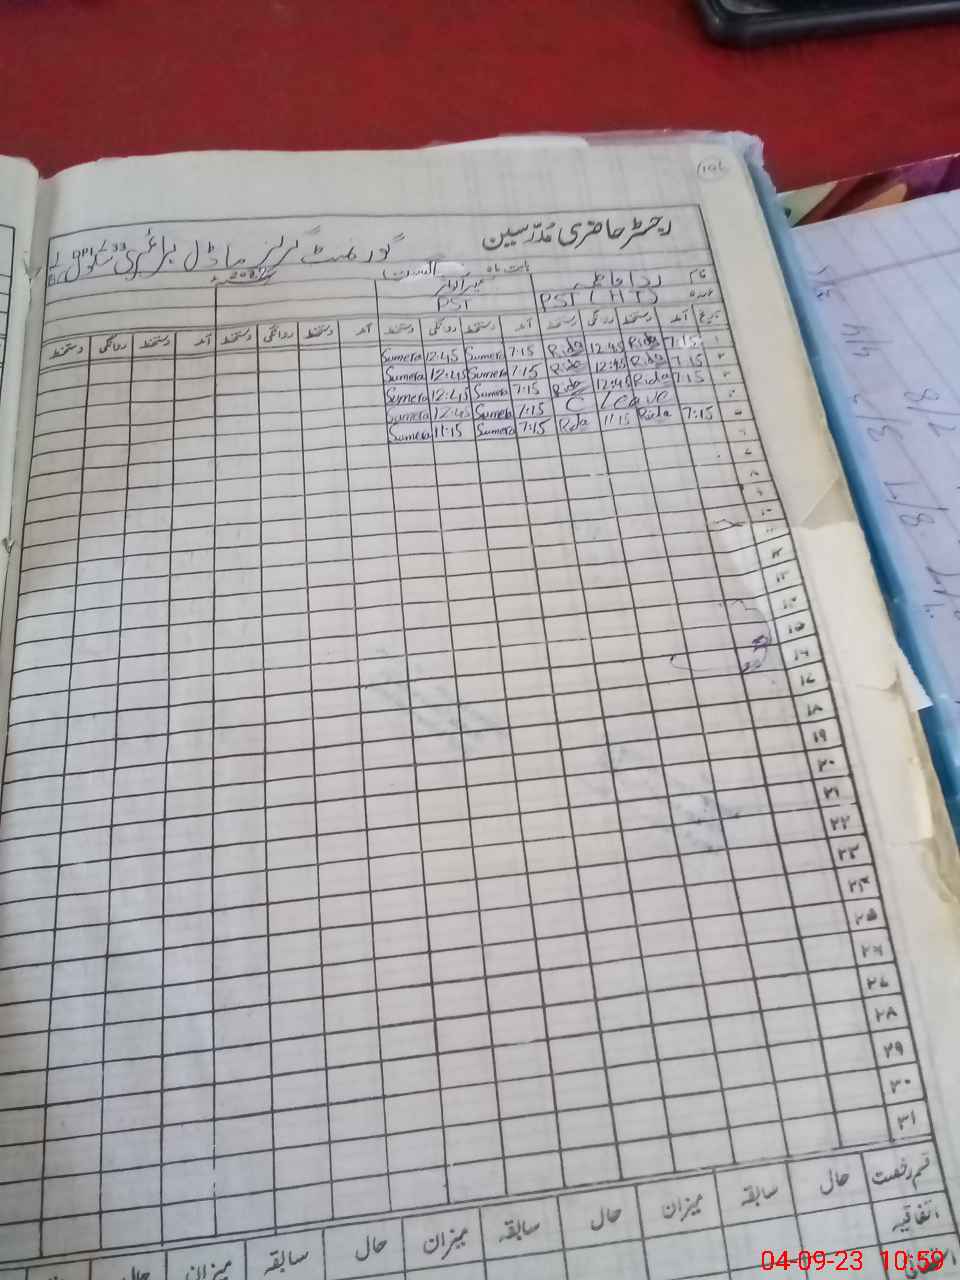 رجسٹر حاضری مدرسین گورنمنٹ گرلز ماڈل پرائمری سکول
بابت ماہ
نام ردا فاطمہ
عہدہ PST (HT) PST
تاریخ آمد دستخط روانگی دستخط آمد دستخط روانگی دستخط آمد دستخط روانگی دستخط آمد دستخط روانگی دستخط
۱ 7:15 Rida 12:45 Rida 7:15 Sumera 12:45 Sumera
۲ 7:15 Rida 12:45 Rida 7:15 Sumera 12:45 Sumera
۳ 7:15 Rida 12:45 Rida 7:15 Sumera 12:45 Sumera
۴ C Leave 7:15 Sumera 12:45 Sumera
۵ 7:15 Rida 11:15 Rida 7:15 Sumera 11:15 Sumera
۶
۷
۸
۹
۱۰
۱۱
۱۲
۱۳
۱۴
۱۵
۱۶
۱۷
۱۸
۱۹
۲۰
۲۱
۲۲
۲۳
۲۴
۲۵
۲۶
۲۷
۲۸
۲۹
۳۰
۳۱
قسم رخصت حال سابقہ میزان حال سابقہ میزان حال سابقہ میزان حال
اتفاقیہ
04-09-23 10:59